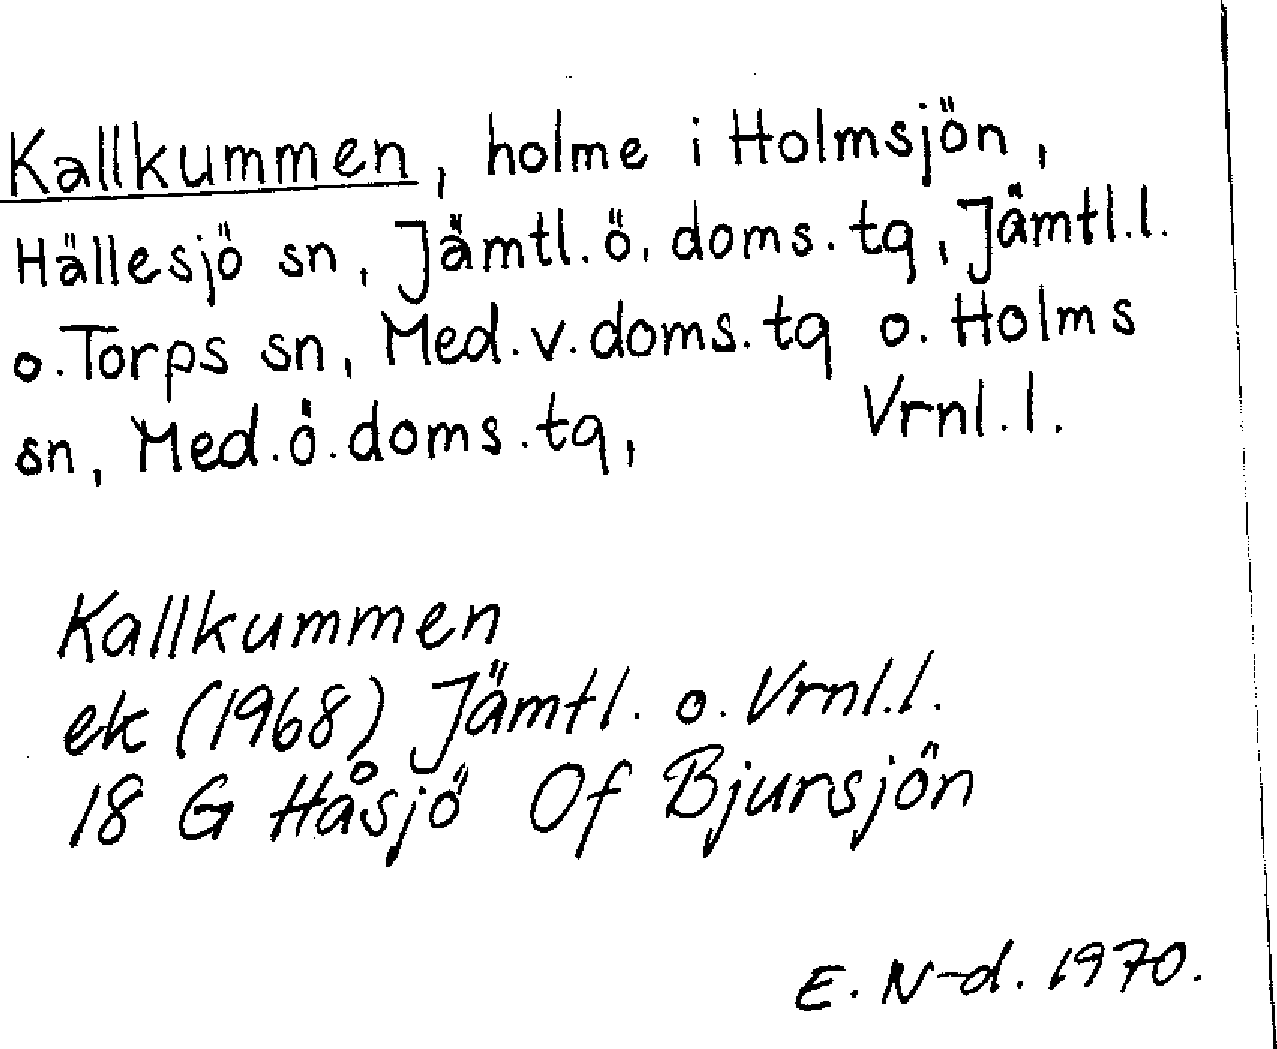 Kallkummen, holme i Holmsjön,
Hällesjö sn, Jämtl. ö. doms. tg, Jämtl. l.
o. Torps sn, Med. v. doms. tg o. Holms
sn, Med. ö. doms. tg, Vrnl. l.
Kallkummen
ek (1968) Jämtl. o. Vrnl. l.
18 G Håsjö Of Bjursjön
E. N-d. 1970.